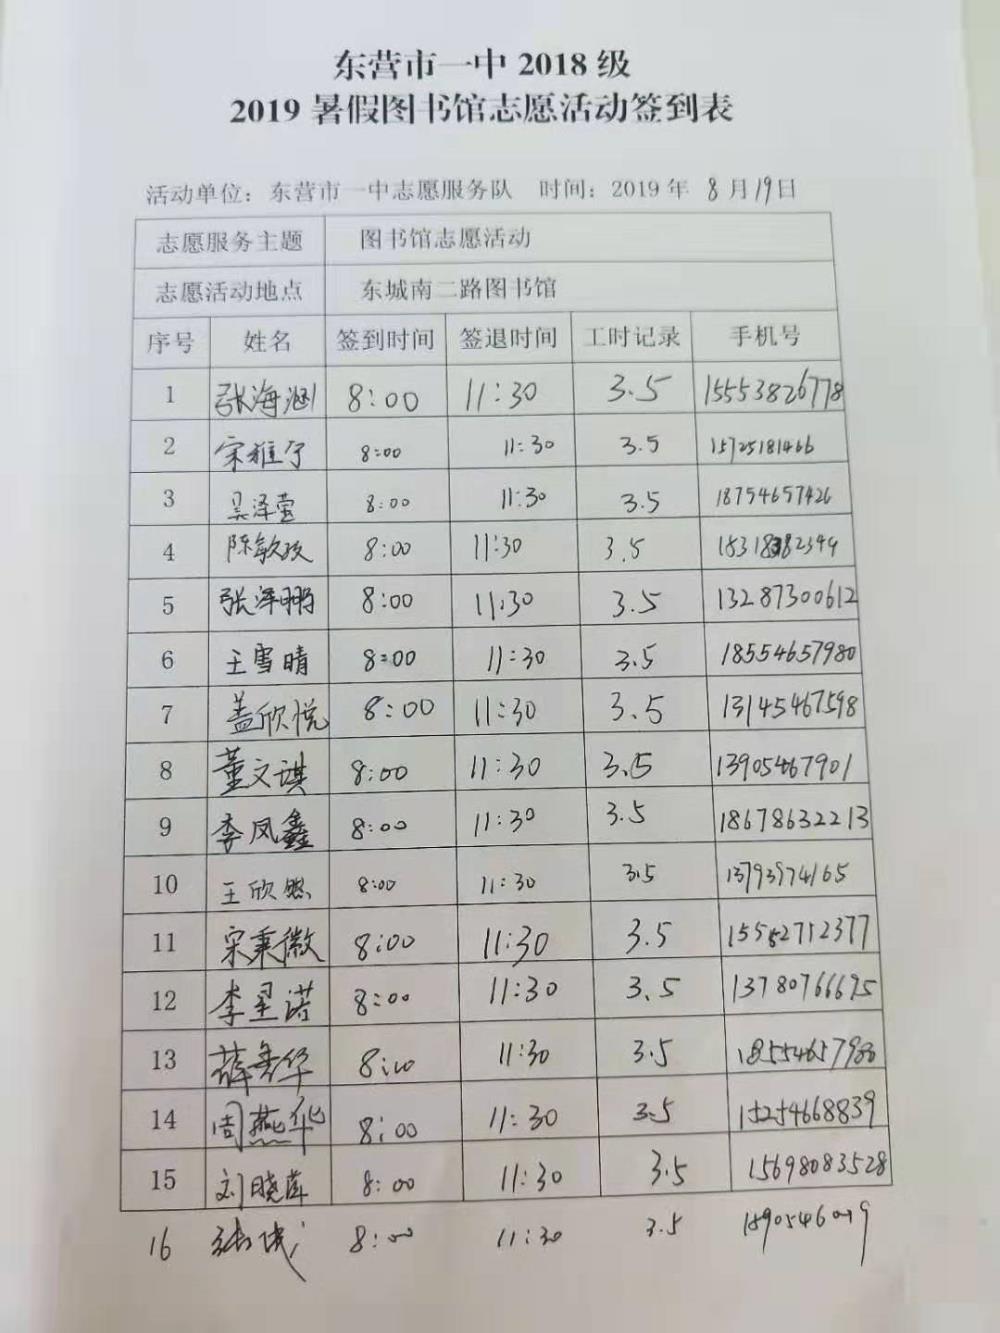 东营市一中 2018 级
2019 暑假图书馆志愿活动签到表
活动单位：东营市一中志愿服务队 时间：2019 年 8 月 19 日
志愿服务主题 图书馆志愿活动
志愿活动地点 东城南二路图书馆
序号 姓名 签到时间 签退时间 工时记录 手机号
1 张海涵 8:00 11:30 3.5 15553826778
2 宋雅宁 8:00 11:30 3.5 15725181466
3 吴泽萱 8:00 11:30 3.5 18754657426
4 陈敏孜 8:00 11:30 3.5
5 张泽鹏 8:00 11:30 3.5 13287300612
6 王雪晴 8:00 11:30 3.5 18554657980
7 盖欣悦 8:00 11:30 3.5 13145467598
8 董文琪 8:00 11:30 3.5 13905467901
9 李凤鑫 8:00 11:30 3.5 18678632213
10 王欣然 8:00 11:30 3.5 13793974165
11 宋秉徽 8:00 11:30 3.5 15562712377
12 李星诺 8:00 11:30 3.5 13780766695
13 8:00 11:30 3.5 18554657980
14 周燕华 8:00 11:30 3.5 15254668839
15 刘晓萍 8:00 11:30 3.5 15698083528
16 8:00 11:30 3.5